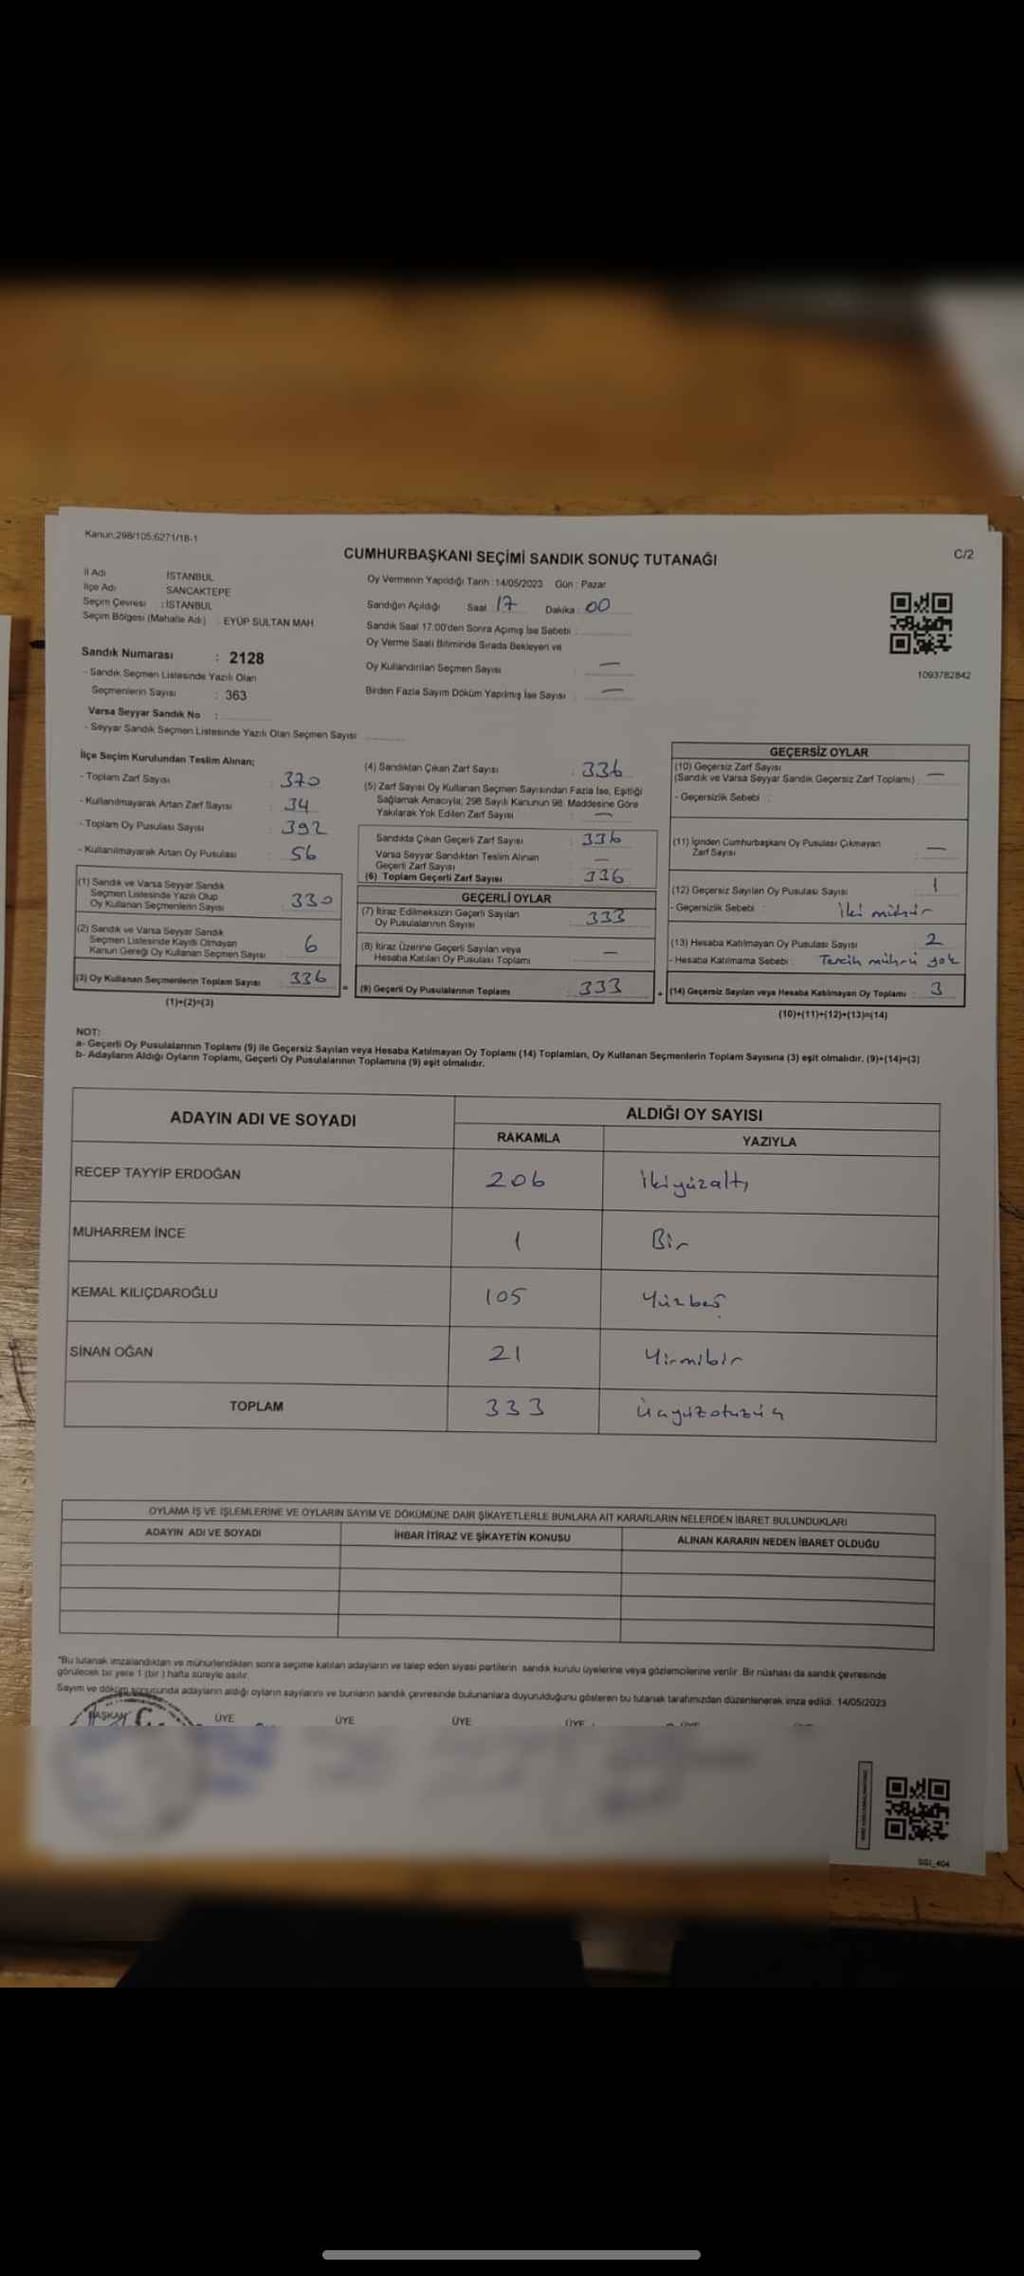 Kanun:298/105,6271/18-1
CUMHURBAŞKANI SEÇİMİ SANDIK SONUÇ TUTANAĞI
C/2
İl Adı İSTANBUL
İlçe Adı SANCAKTEPE
Seçim Çevresi : İSTANBUL
Seçim Bölgesi (Mahalle Adı) : EYÜP SULTAN MAH
Sandık Numarası : 2128
- Sandık Seçmen Listesinde Yazılı Olan
Seçmenlerin Sayısı : 363
Varsa Seyyar Sandık No :
- Seyyar Sandık Seçmen Listesinde Yazılı Olan Seçmen Sayısı
Oy Vermenin Yapıldığı Tarih : 14/05/2023 Gün : Pazar
Sandığın Açıldığı Saat : 17 Dakika : 00
Sandık Saat 17:00'den Sonra Açımış İse Sebebi :
Oy Verme Saati Bitiminde Sırada Bekleyen ve
Oy Kullandırılan Seçmen Sayısı : —
Birden Fazla Sayım Döküm Yapılmış İse Sayısı : —
1093782842
İlçe Seçim Kurulundan Teslim Alınan;
- Toplam Zarf Sayısı : 370
- Kullanılmayarak Artan Zarf Sayısı : 34
- Toplam Oy Pusulası Sayısı : 392
- Kullanılmayarak Artan Oy Pusulası : 56
(1) Sandık ve Varsa Seyyar Sandık
Seçmen Listesinde Yazılı Olup
Oy Kullanan Seçmenlerin Sayısı : 330
(2) Sandık ve Varsa Seyyar Sandık
Seçmen Listesinde Kayıtlı Olmayan
Kanun Gereği Oy Kullanan Seçmen Sayısı : 6
(3) Oy Kullanan Seçmenlerin Toplam Sayısı : 336
(1)+(2)=(3)
(4) Sandıktan Çıkan Zarf Sayısı : 336
(5) Zarf Sayısı Oy Kullanan Seçmen Sayısından Fazla İse, Eşitliği
Sağlamak Amacıyla; 298 Sayılı Kanunun 98. Maddesine Göre
Yakılarak Yok Edilen Zarf Sayısı : —
Sandıkta Çıkan Geçerli Zarf Sayısı : 336
Varsa Seyyar Sandıktan Teslim Alınan
Geçerli Zarf Sayısı : —
(6) Toplam Geçerli Zarf Sayısı : 336
GEÇERLİ OYLAR
(7) İtiraz Edilmeksizin Geçerli Sayılan
Oy Pusulalarının Sayısı : 333
(8) İtiraz Üzerine Geçerli Sayılan veya
Hesaba Katılan Oy Pusulası Toplamı : —
(9) Geçerli Oy Pusulalarının Toplamı : 333
GEÇERSİZ OYLAR
(10) Geçersiz Zarf Sayısı
(Sandık ve Varsa Seyyar Sandık Geçersiz Zarf Toplamı) : —
- Geçersizlik Sebebi :
(11) İçinden Cumhurbaşkanı Oy Pusulası Çıkmayan
Zarf Sayısı : —
(12) Geçersiz Sayılan Oy Pusulası Sayısı : 1
- Geçersizlik Sebebi : İki mühür
(13) Hesaba Katılmayan Oy Pusulası Sayısı : 2
- Hesaba Katılmama Sebebi : Tercih mührü yok
(14) Geçersiz Sayılan veya Hesaba Katılmayan Oy Toplamı : 3
(10)+(11)+(12)+(13)=(14)
NOT:
a- Geçerli Oy Pusulalarının Toplamı (9) ile Geçersiz Sayılan veya Hesaba Katılmayan Oy Toplamı (14) Toplamları, Oy Kullanan Seçmenlerin Toplam Sayısına (3) eşit olmalıdır. (9)+(14)=(3)
b- Adayların Aldığı Oyların Toplamı, Geçerli Oy Pusulalarının Toplamına (9) eşit olmalıdır.
ADAYIN ADI VE SOYADI ALDIĞI OY SAYISI
RAKAMLA YAZIYLA
RECEP TAYYİP ERDOĞAN 206 İkiyüzaltı
MUHARREM İNCE 1 Bir
KEMAL KILIÇDAROĞLU 105 Yüzbeş
SİNAN OĞAN 21 Yirmibir
TOPLAM 333 Üçyüzotuzüç
OYLAMA İŞ VE İŞLEMLERİNE VE OYLARIN SAYIM VE DÖKÜMÜNE DAİR ŞİKAYETLERLE BUNLARA AİT KARARLARIN NELERDEN İBARET BULUNDUKLARI
ADAYIN ADI VE SOYADI İHBAR İTİRAZ VE ŞİKAYETİN KONUSU ALINAN KARARIN NEDEN İBARET OLDUĞU
"Bu tutanak imzalandıktan ve mühürlendikten sonra seçime katılan adayların ve talep eden siyasi partilerin sandık kurulu üyelerine veya gözlemcilerine verilir. Bir nüshası da sandık çevresinde
görülecek bir yere 1 (bir) hafta süreyle asılır.
Sayım ve döküm sonucunda adayların aldığı oyların sayılarını ve bunların sandık çevresinde bulunanlara duyurulduğunu gösteren bu tutanak tarafımızdan düzenlenerek imza edildi. 14/05/2023
BAŞKAN ÜYE ÜYE ÜYE ÜYE ÜYE
SSI_404